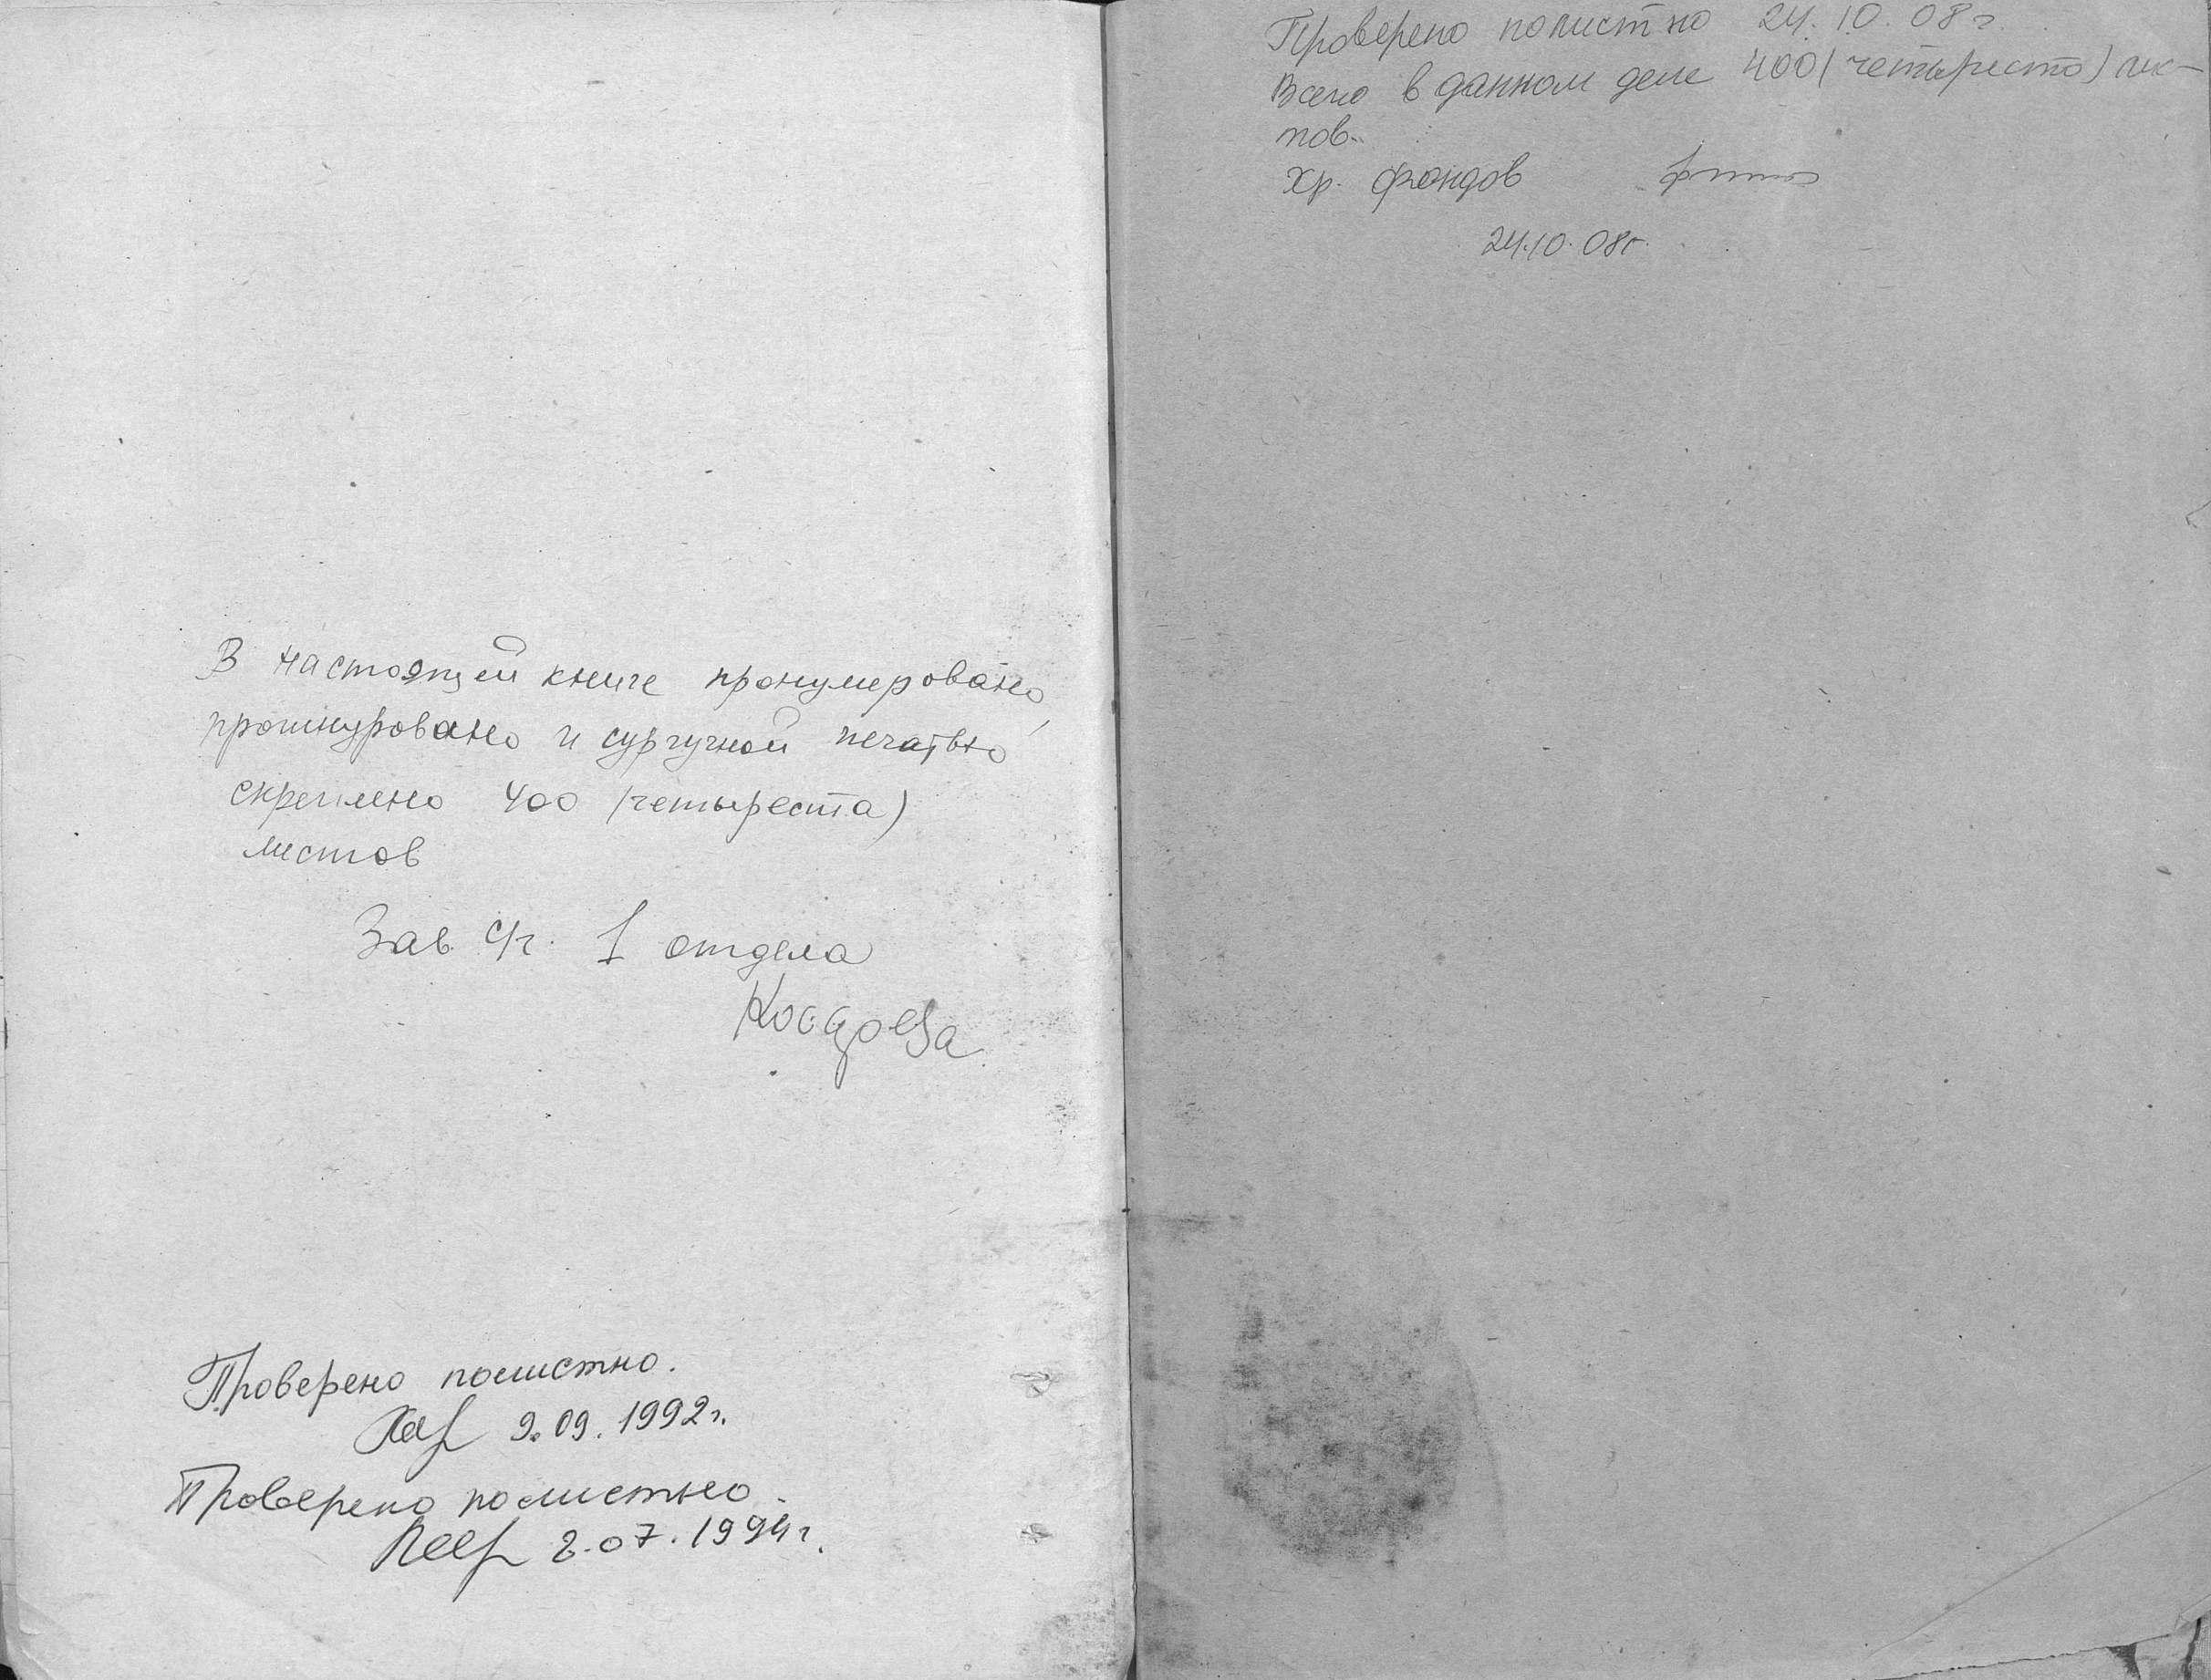 В настоящей книге пронумеровано,
прошнуровано и сургучной печатью
скреплено 400 (четыреста)
листов
Зав. с/ч. 1 отдела
Проверено полистно.
9.09.1992г.
Проверено полистно.
2.07.1994г.
Проверено полистно 24.10.08г.
Всего в данном деле 400 (четыресто) лис-
тов.
Хр. фондов
24.10.08г.